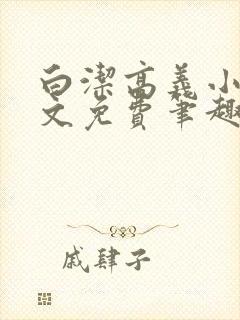 白潔高義小
文免費筆趣
戚肆子